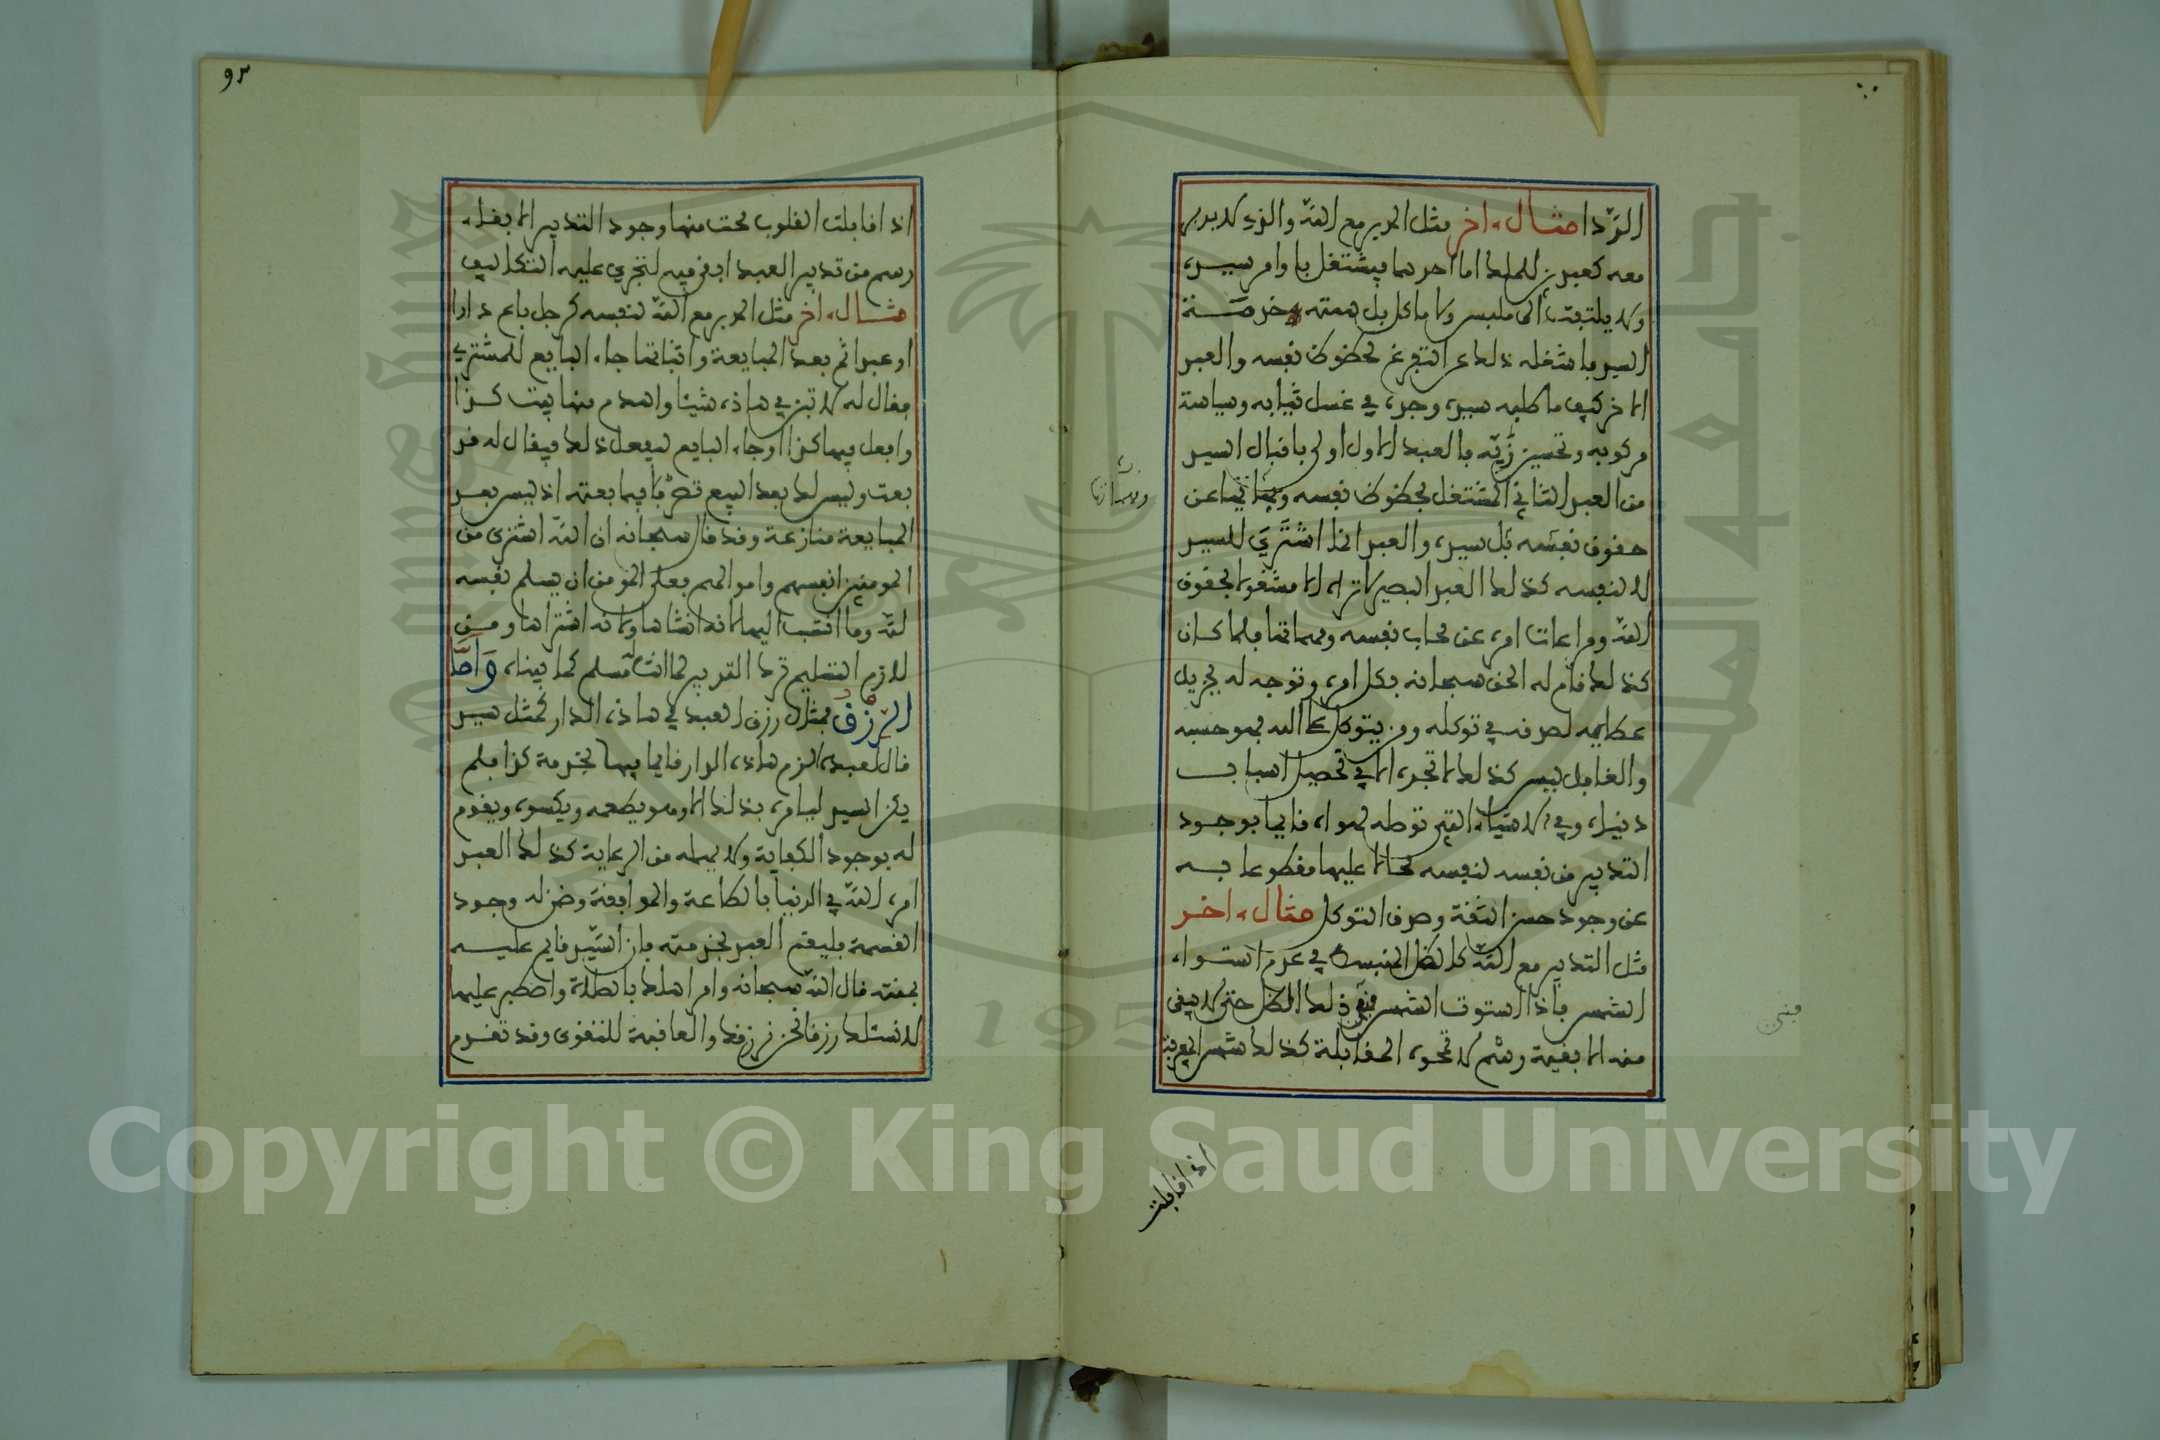 الردا مثال اخر مثل المدبر مع الله والذي لا يدبر
معه كعبدين للملك اما احدهما فيشتغل باوامر سيده
ولا يلتفت الى ملبس ولا ماكل بل همته خدمة
السيد فاشغله ذلك عن التفرغ لحظوظ نفسه والعبد
الاخر كيف ما طلبه سيده وجده في غسل ثيابه وسياسة
مركوبه وتحسين زيه فالعبد الاول اولى باقبال السيد
من العبد الثاني المشتغل بحظوظ نفسه عن
حقوق نفسه بل سيده والعبد انما اشتري للسيد
لا لنفسه كذلك العبد البصير لا تراه الا مشغولا بحقوق
الله ومراعات امره عن محاب نفسه ومهماتها فلما كان
كذلك قام له الحق سبحانه بكل امره وتوجه له بجزيل
عطايه لصدقه في توكله ومن يتوكل على الله فهو حسبه
والغافل ليس كذلك لا تجده الا في تحصيل اسباب
دنياه وفي الاشياء التي توصله لهواه قايما بوجود
التدبير من نفسه لنفسه محالا عليها مقطوعا به
عن وجود حسن الثقة وصدق التوكل مثال اخر
مثل التدبير مع الله كالظل المنبسط في عدم استواء
الشمس فاذا استوت الشمس فني ذلك الظل حتى لا يبقى
منه الا بقية رسم لا تمحوه المقابلة كذلك شمس المعرفة
اذا قابلت
فني
اذا قابلت القلوب محت منها وجود التدبير الا بقاء
رسم من تدبير العبد ابقي فيه لتجري عليه التكاليف
مثال اخر مثل المدبر مع الله لنفسه كرجل باع دارا
او عبدا ثم بعد المبايعة واثباتها جاء البايع للمشتري
فقال له لا تبن في هاذه شيئا واهدم منها بيت كذا
وافعل فيها كذا او جاء البايع ليفعل ذلك فيقال له قد
بعت وليس لك بعد البيع تصرف فيما بعته اذ ليس بعد
المبايعة منازعة وقد قال سبحانه ان الله اشترى من
المومنين انفسهم واموالهم فعلى المومن ان يسلم نفسه
لله وما انتسب اليها لانه انشاها ولانه اشتراها ومن
لازم التسليم ترك التدبير لما انت مسلم كما بيناه واما
الرزق فمثل رزق العبد في هاذه الدار كمثل سيد
قال لعبده الزم هاذه الدار قايما فيها بخدمة كذا فلم
يكن السيد ليامره بذلك الا وهو يطعمه ويكسوه ويقوم
له بوجود الكفاية ولا يهمله من الرعاية كذلك العبد
امره الله في الدنيا بالطاعة والموافقة وضمن له وجود
القسمة فليقم العبد بخدمته فان السيد قايم عليه
بمنته قال الله سبحانه وامر اهلك بالصلاة واصطبر عليها
لا نسئلك رزقا نحن نرزقك والعاقبة للتقوى وقد تقدم
Copyright © King Saud University
1957